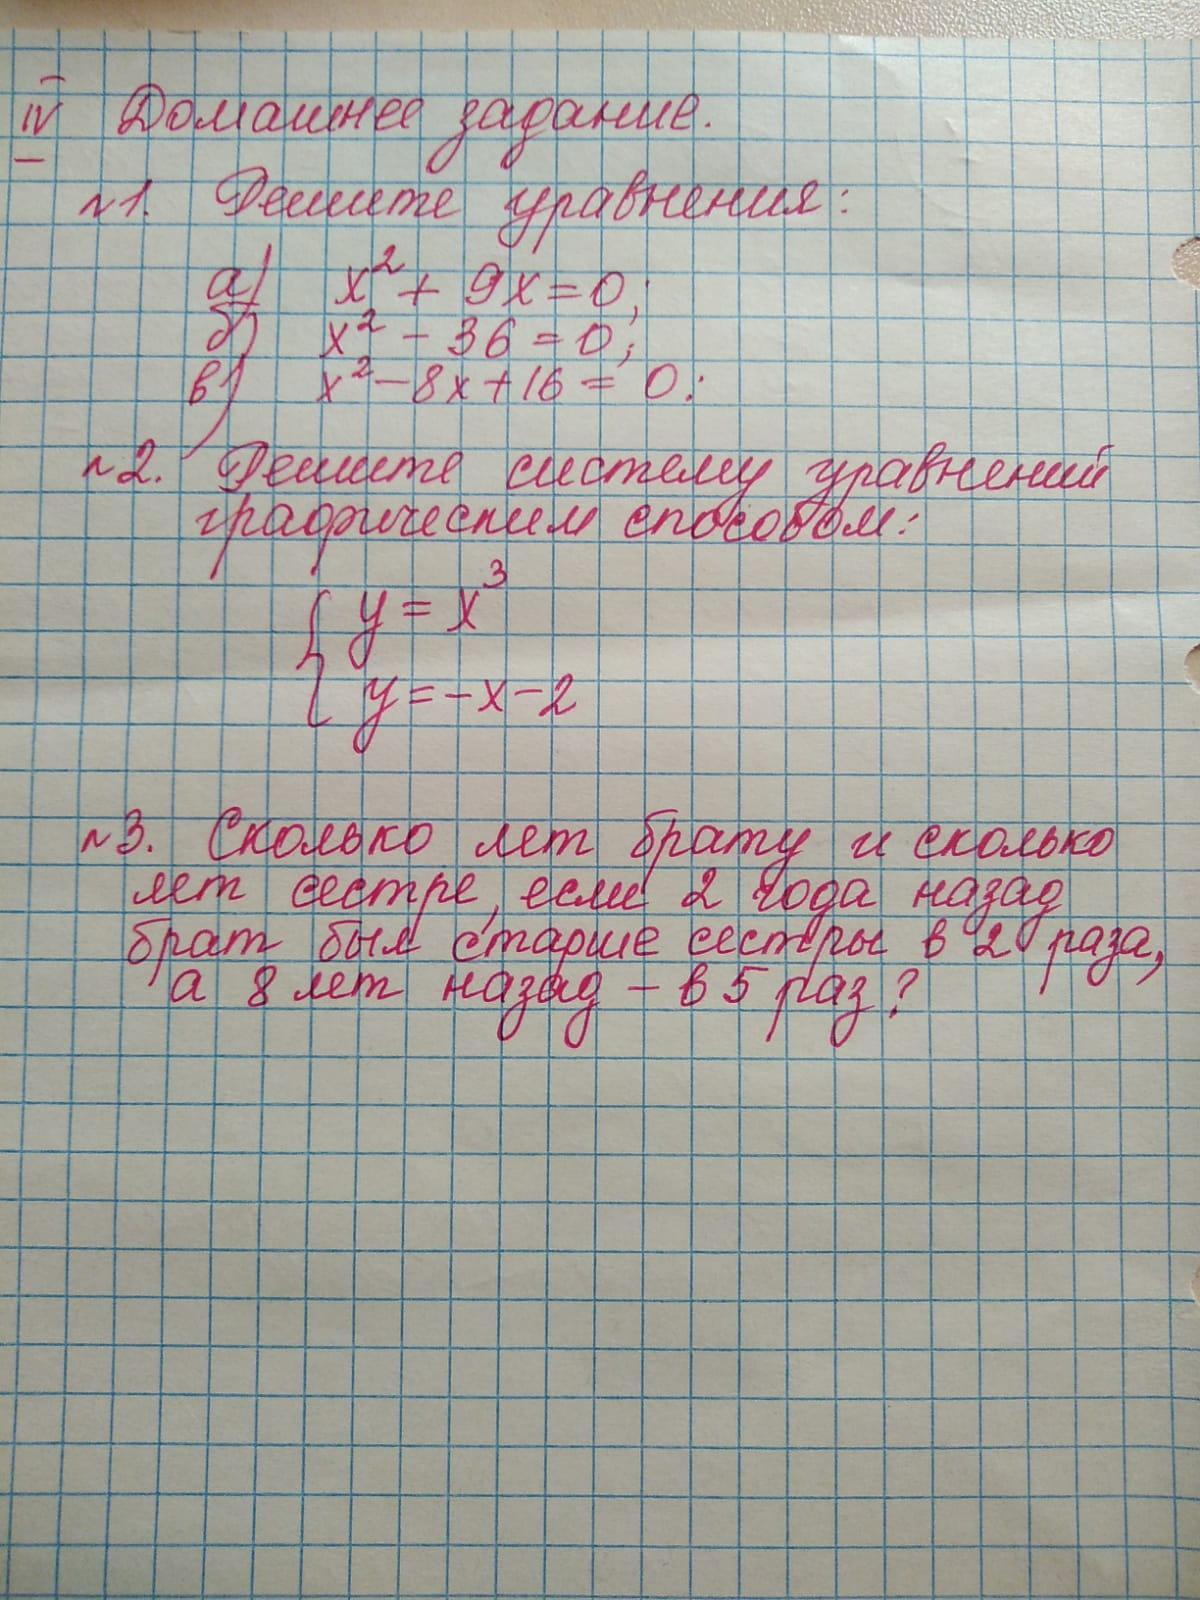 IV Домашнее задание.
№1. Решите уравнения:
а) x² + 9x = 0;
б) x² - 36 = 0;
в) x² - 8x + 16 = 0.
№2. Решите систему уравнений
графическим способом:
{ y = x³
{ y = -x - 2
№3. Сколько лет брату и сколько
лет сестре, если 2 года назад
брат был старше сестры в 2 раза,
а 8 лет назад - в 5 раз?